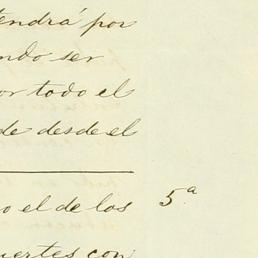 tendrá por
ndo ser
or todo el
de desde el
o el de los
5.ª
uertes con